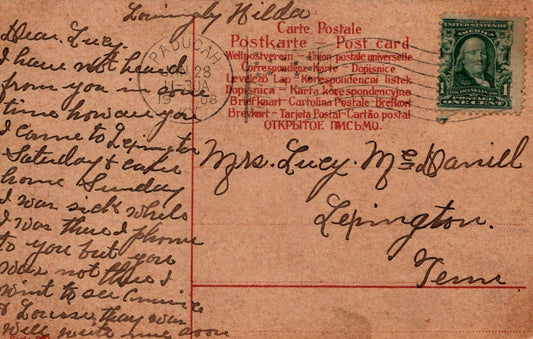 Lovingly Hilda
Dear Lucy
I have not heard
from you in some
time how are you
I came to Lexington
Saturday & came
home Sunday
I was sick while
I was there I phone
to you but you
was not there I
went to see
& they was
well write me soon
PADUCAH
28
Carte Postale
Postkarte — Post card
Weltpostverein — Union postale universelle
Correspondenz-Karte — Dopisnice
Levelező Lap — Korespondenční lístek
Dopisnica — Karta korespondencyjna
Brefkaart — Cartolina Postale — Brefkort
Brevkort — Tarjeta Postal — Cartão postal
ОТКРЫТОЕ ПИСЬМО.
UNITED STATES OF
AMERICA
1 1
ONE CENT
Mrs. Lucy McDaniell
Lexington.
Tenn